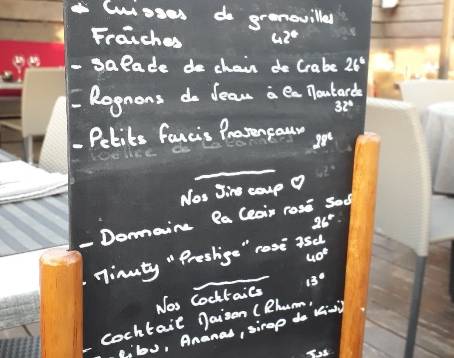 * Cuisses de grenouilles
Fraîches 42€
- Salade de chair de Crabe 26€
- Rognons de Veau à la Moutarde
32€
- Petits farcis Provençaux
28€
Nos Vins coup ♡
- Domaine la Croix rosé 50cl
26€
- Minuty "Prestige" rosé 75cl
40€
Nos Cocktails 13€
- Cocktail Maison (Rhum,
Malibu, Ananas, sirop de Kiwi)